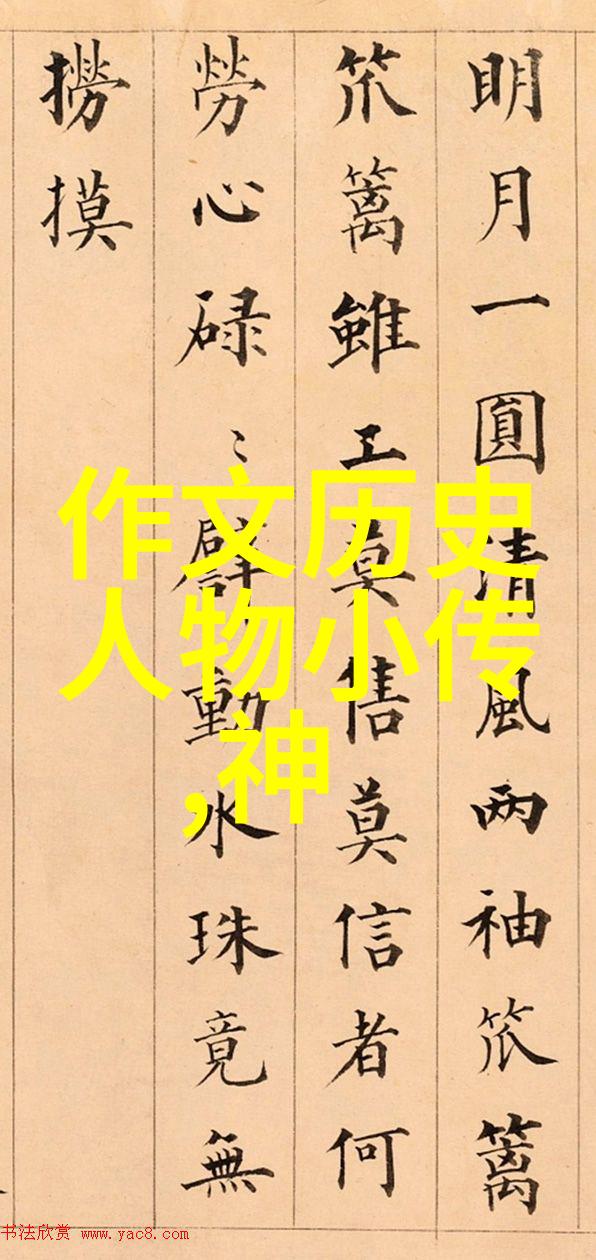 明月一圓清風两袖笊篱
笊篱雖工莫售莫信者何
勞心碌〻譬動水珠竟無
撈摸
作文历史
人物小传
,神
书法欣赏 www.yac8.com